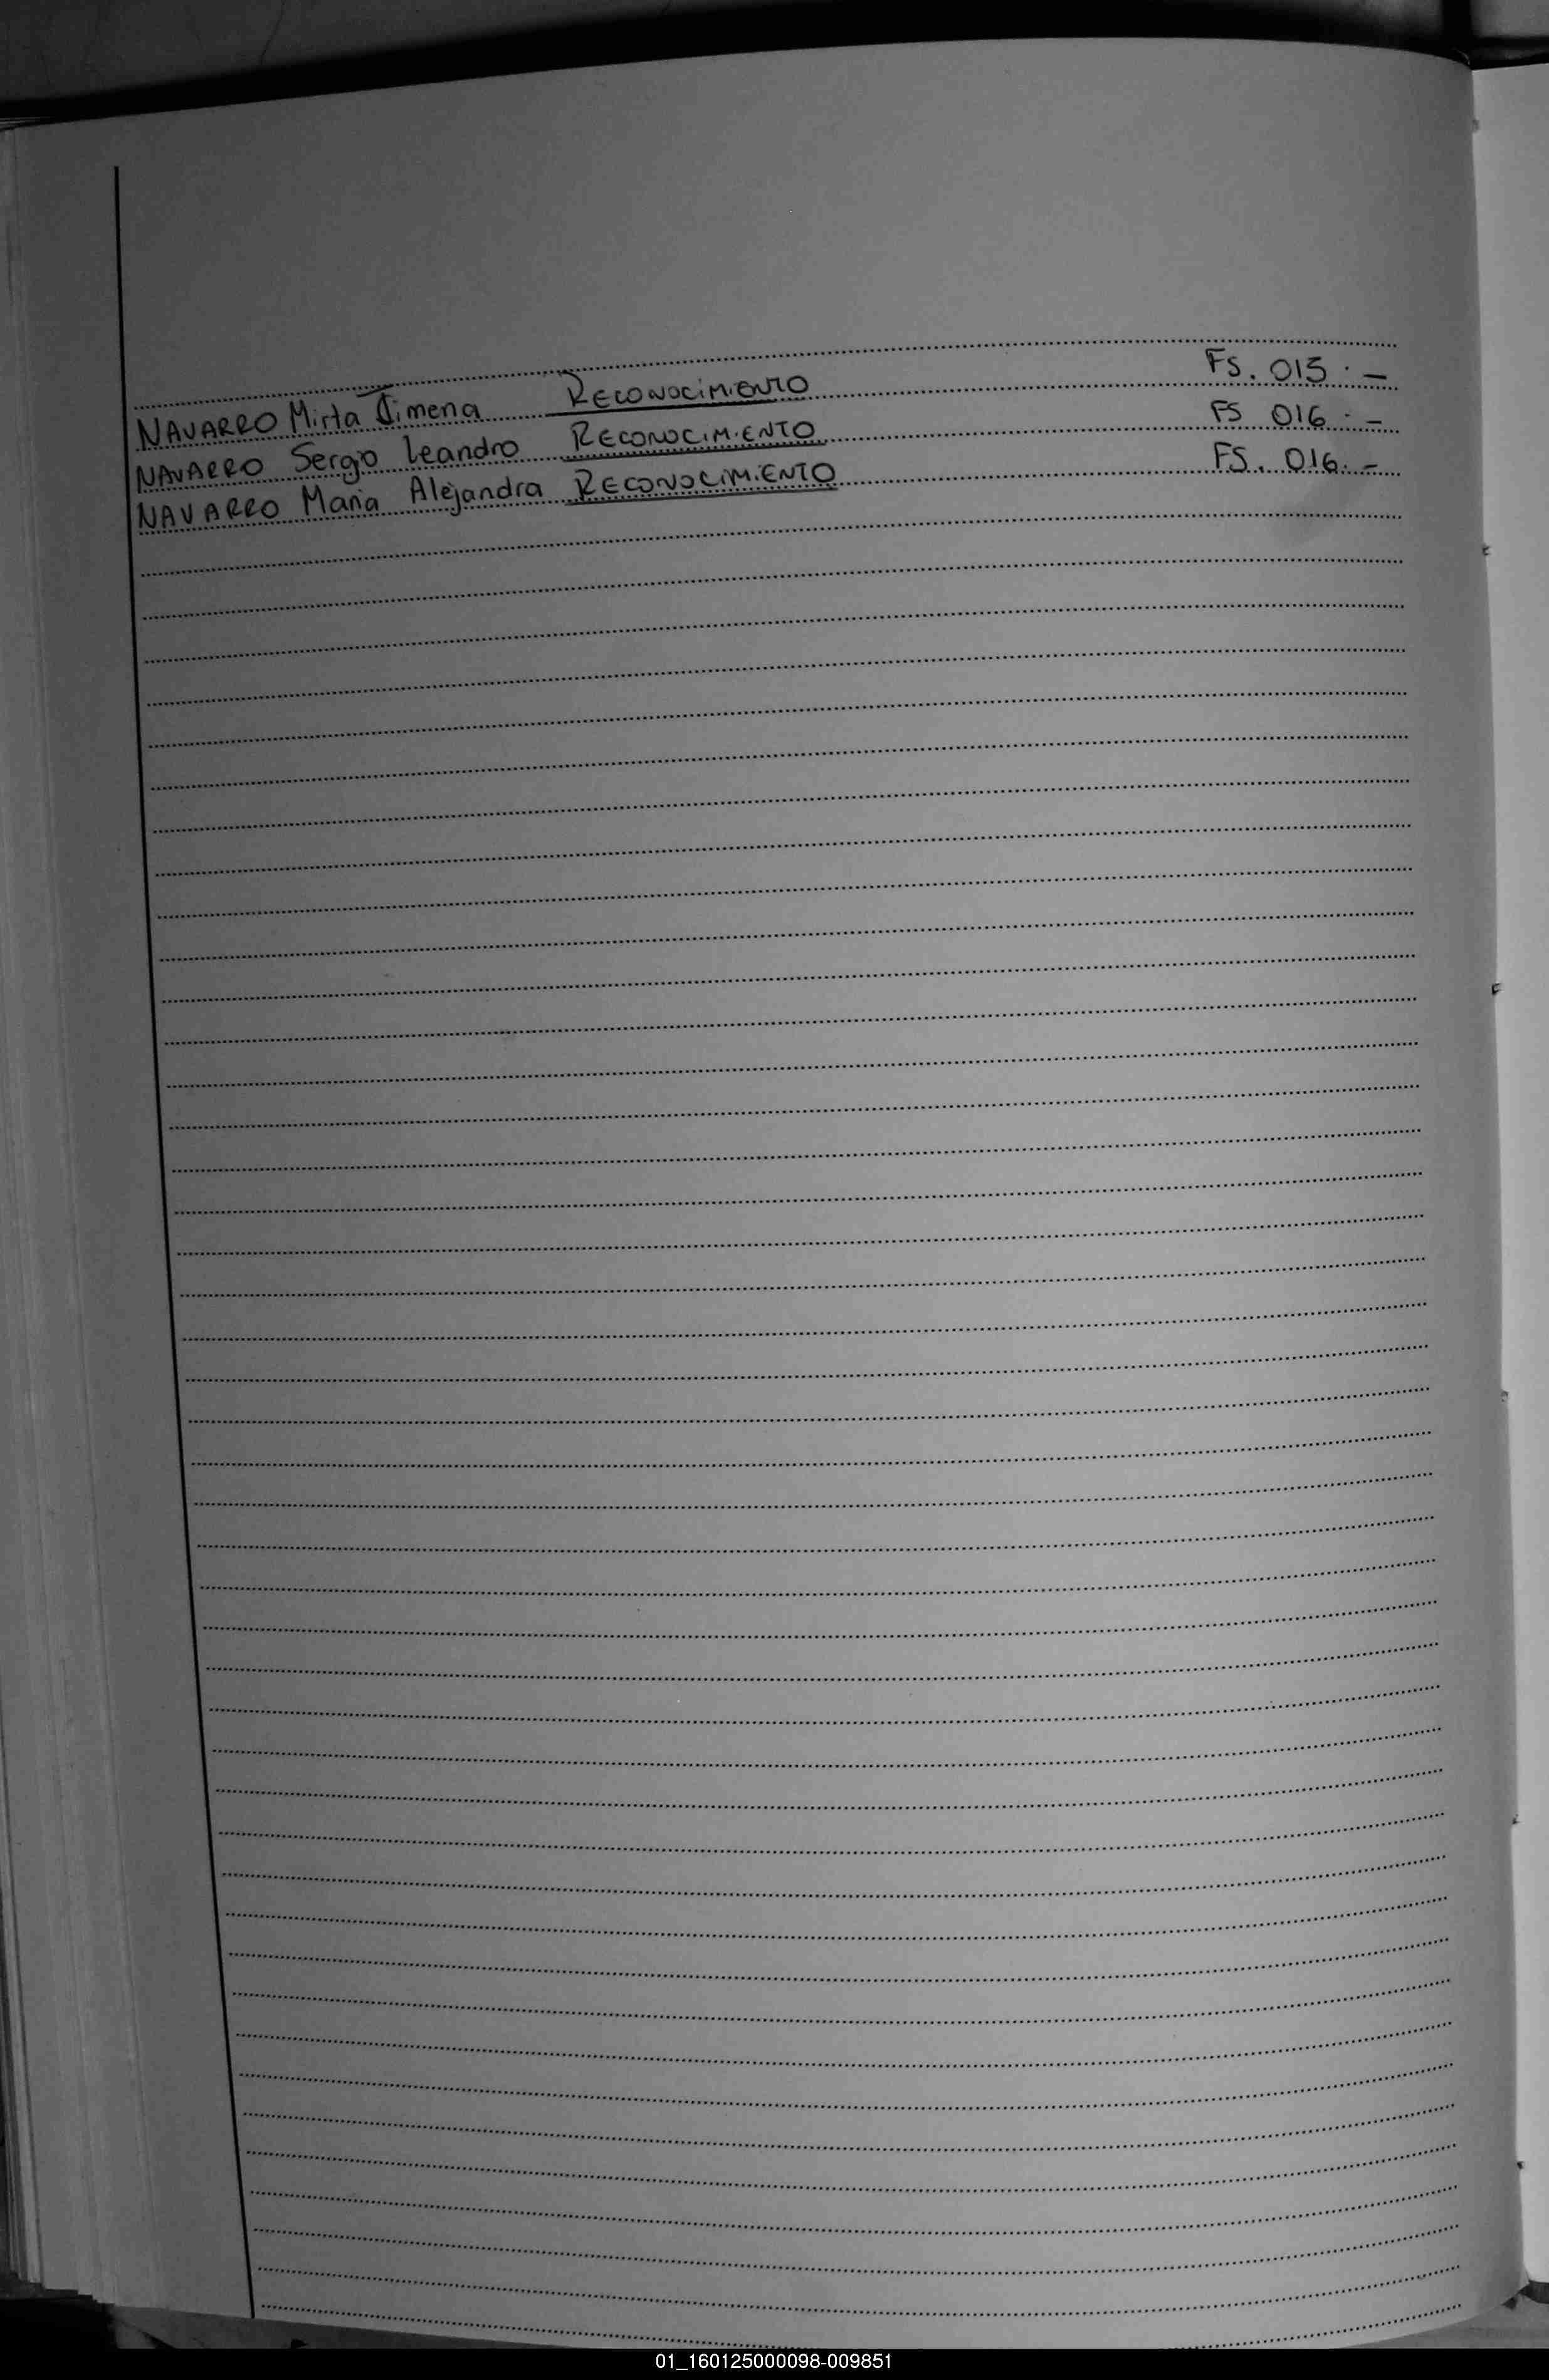 NAVARRO Mirta Jimena RECONOCIMIENTO FS. 015.-
NAVARRO Sergio Leandro RECONOCIMIENTO FS 016.-
NAVARRO Maria Alejandra RECONOCIMIENTO FS. 016.-
01_160125000098-009851